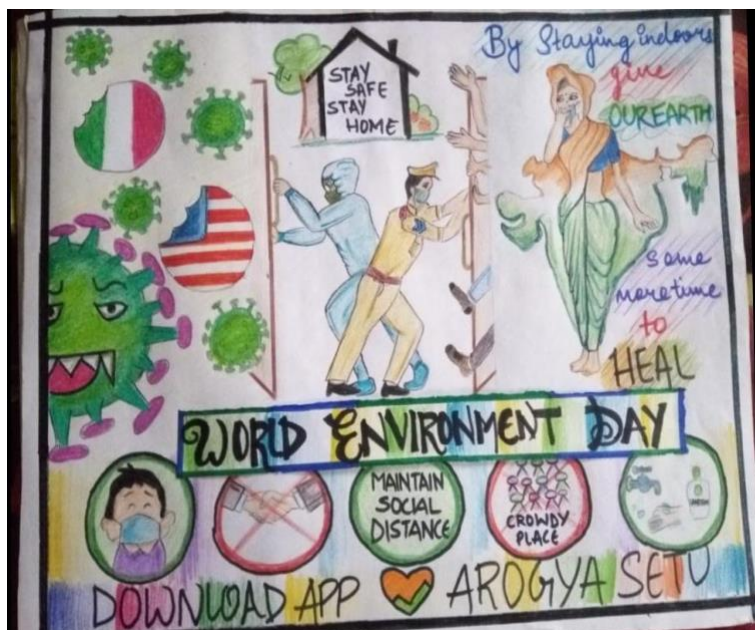 STAY
SAFE
STAY
HOME
By Staying indoors
give
OUR EARTH
some
more time
to
HEAL
WORLD ENVIRONMENT DAY
MAINTAIN
SOCIAL
DISTANCE
CROWDY
PLACE
DOWNLOAD APP AROGYA SETU